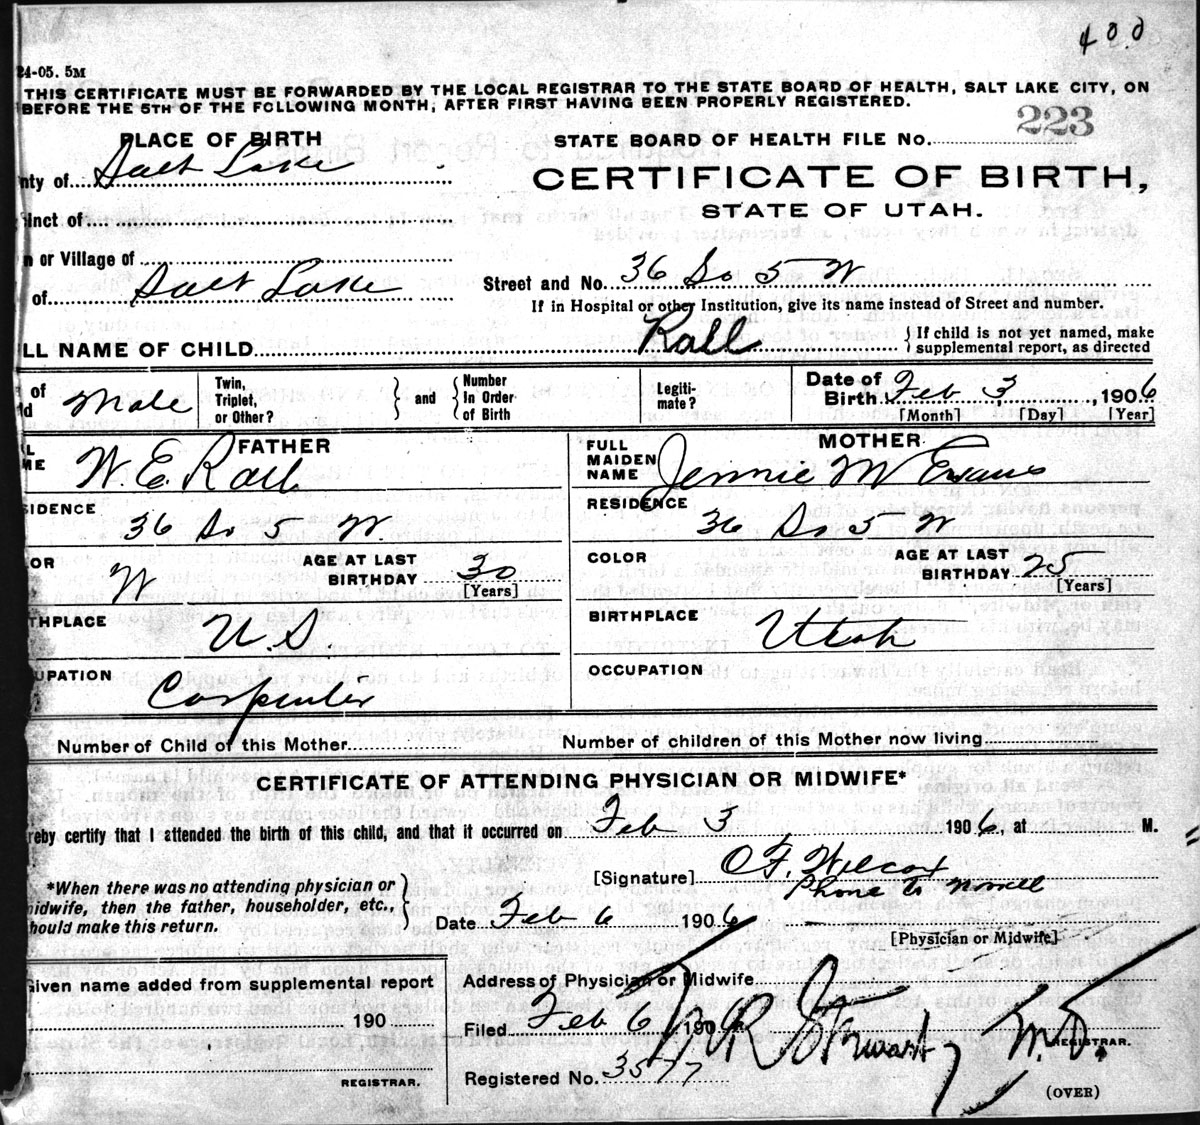 400
24-05. 5M
THIS CERTIFICATE MUST BE FORWARDED BY THE LOCAL REGISTRAR TO THE STATE BOARD OF HEALTH, SALT LAKE CITY, ON
BEFORE THE 5TH OF THE FOLLOWING MONTH, AFTER FIRST HAVING BEEN PROPERLY REGISTERED.
PLACE OF BIRTH
STATE BOARD OF HEALTH FILE No. 223
nty of Salt Lake
CERTIFICATE OF BIRTH,
STATE OF UTAH.
inct of
n or Village of
of Salt Lake
Street and No. 36 So 5 W
If in Hospital or other Institution, give its name instead of Street and number.
LL NAME OF CHILD Rall
{If child is not yet named, make
supplemental report, as directed
of
d Male
Twin,
Triplet,
or Other?
} and {
Number
In Order
of Birth
Legiti-
mate?
Date of
Birth Feb 3, 1906
[Month] [Day] [Year]
FATHER
L
ME W. E. Rall
MOTHER
FULL
MAIDEN
NAME Jennie M Evans
IDENCE
36 So 5 W
RESIDENCE
36 So 5 W
OR
W
AGE AT LAST
BIRTHDAY 30
[Years]
COLOR
AGE AT LAST
BIRTHDAY 25
[Years]
THPLACE
U. S
BIRTHPLACE
Utah
UPATION
Carpenter
OCCUPATION
Number of Child of this Mother
Number of children of this Mother now living
CERTIFICATE OF ATTENDING PHYSICIAN OR MIDWIFE*
reby certify that I attended the birth of this child, and that it occurred on Feb 3, 1906, at M.
[Signature] O. F. Wilcox
Phone to
*When there was no attending physician or
idwife, then the father, householder, etc.,
hould make this return. }
Date Feb 6 1906
[Physician or Midwife]
Given name added from supplemental report
190
REGISTRAR.
Address of Physician or Midwife
Filed Feb 6, 190 Stewart, M.D.
REGISTRAR.
Registered No. 3577
(OVER)